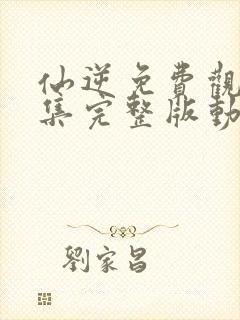 仙逆免費觀
集完整版動
劉家昌